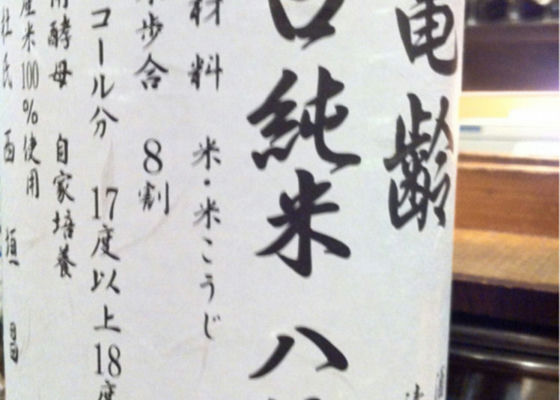 亀齢
口純米 八
材料 米・米こうじ
米歩合 8割
コール分 17度以上18度
用酵母 自家培養
産米100%使用
杜氏 西垣昌